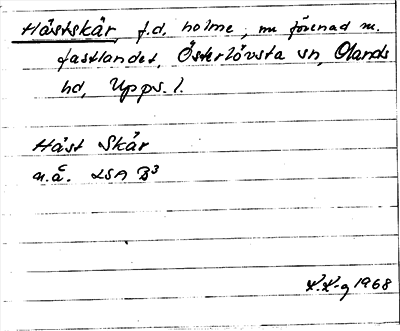 Hästskär, f.d. holme, nu förenad m.
fastlandet, Österlövsta sn, Olands
hd, Upps. l.
Häst Skär
u.å. LSA B³
1968